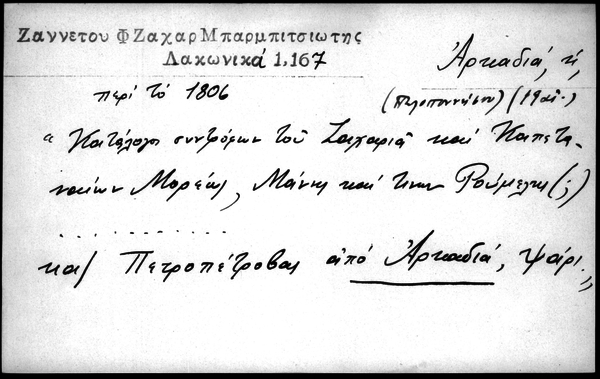 Ζαννετου Φ Ζαχαρ Μπαρμπιτσιωτης
Λακωνικά 1.167
Ἀρκαδιά, ἡ,
(Πελοποννήσου) (19 αἰ.)
περί τό 1806
"Κατάλογοι συντρόφων τοῦ Ζαχαριᾶ καί Καπετα-
ναίων Μορέως, Μάνης καί τινων Ρούμελης (;)
. . . . . . . . . . .
καί Πετροπέτροβας ἀπό Ἀρκαδιά, ψάρι.,,